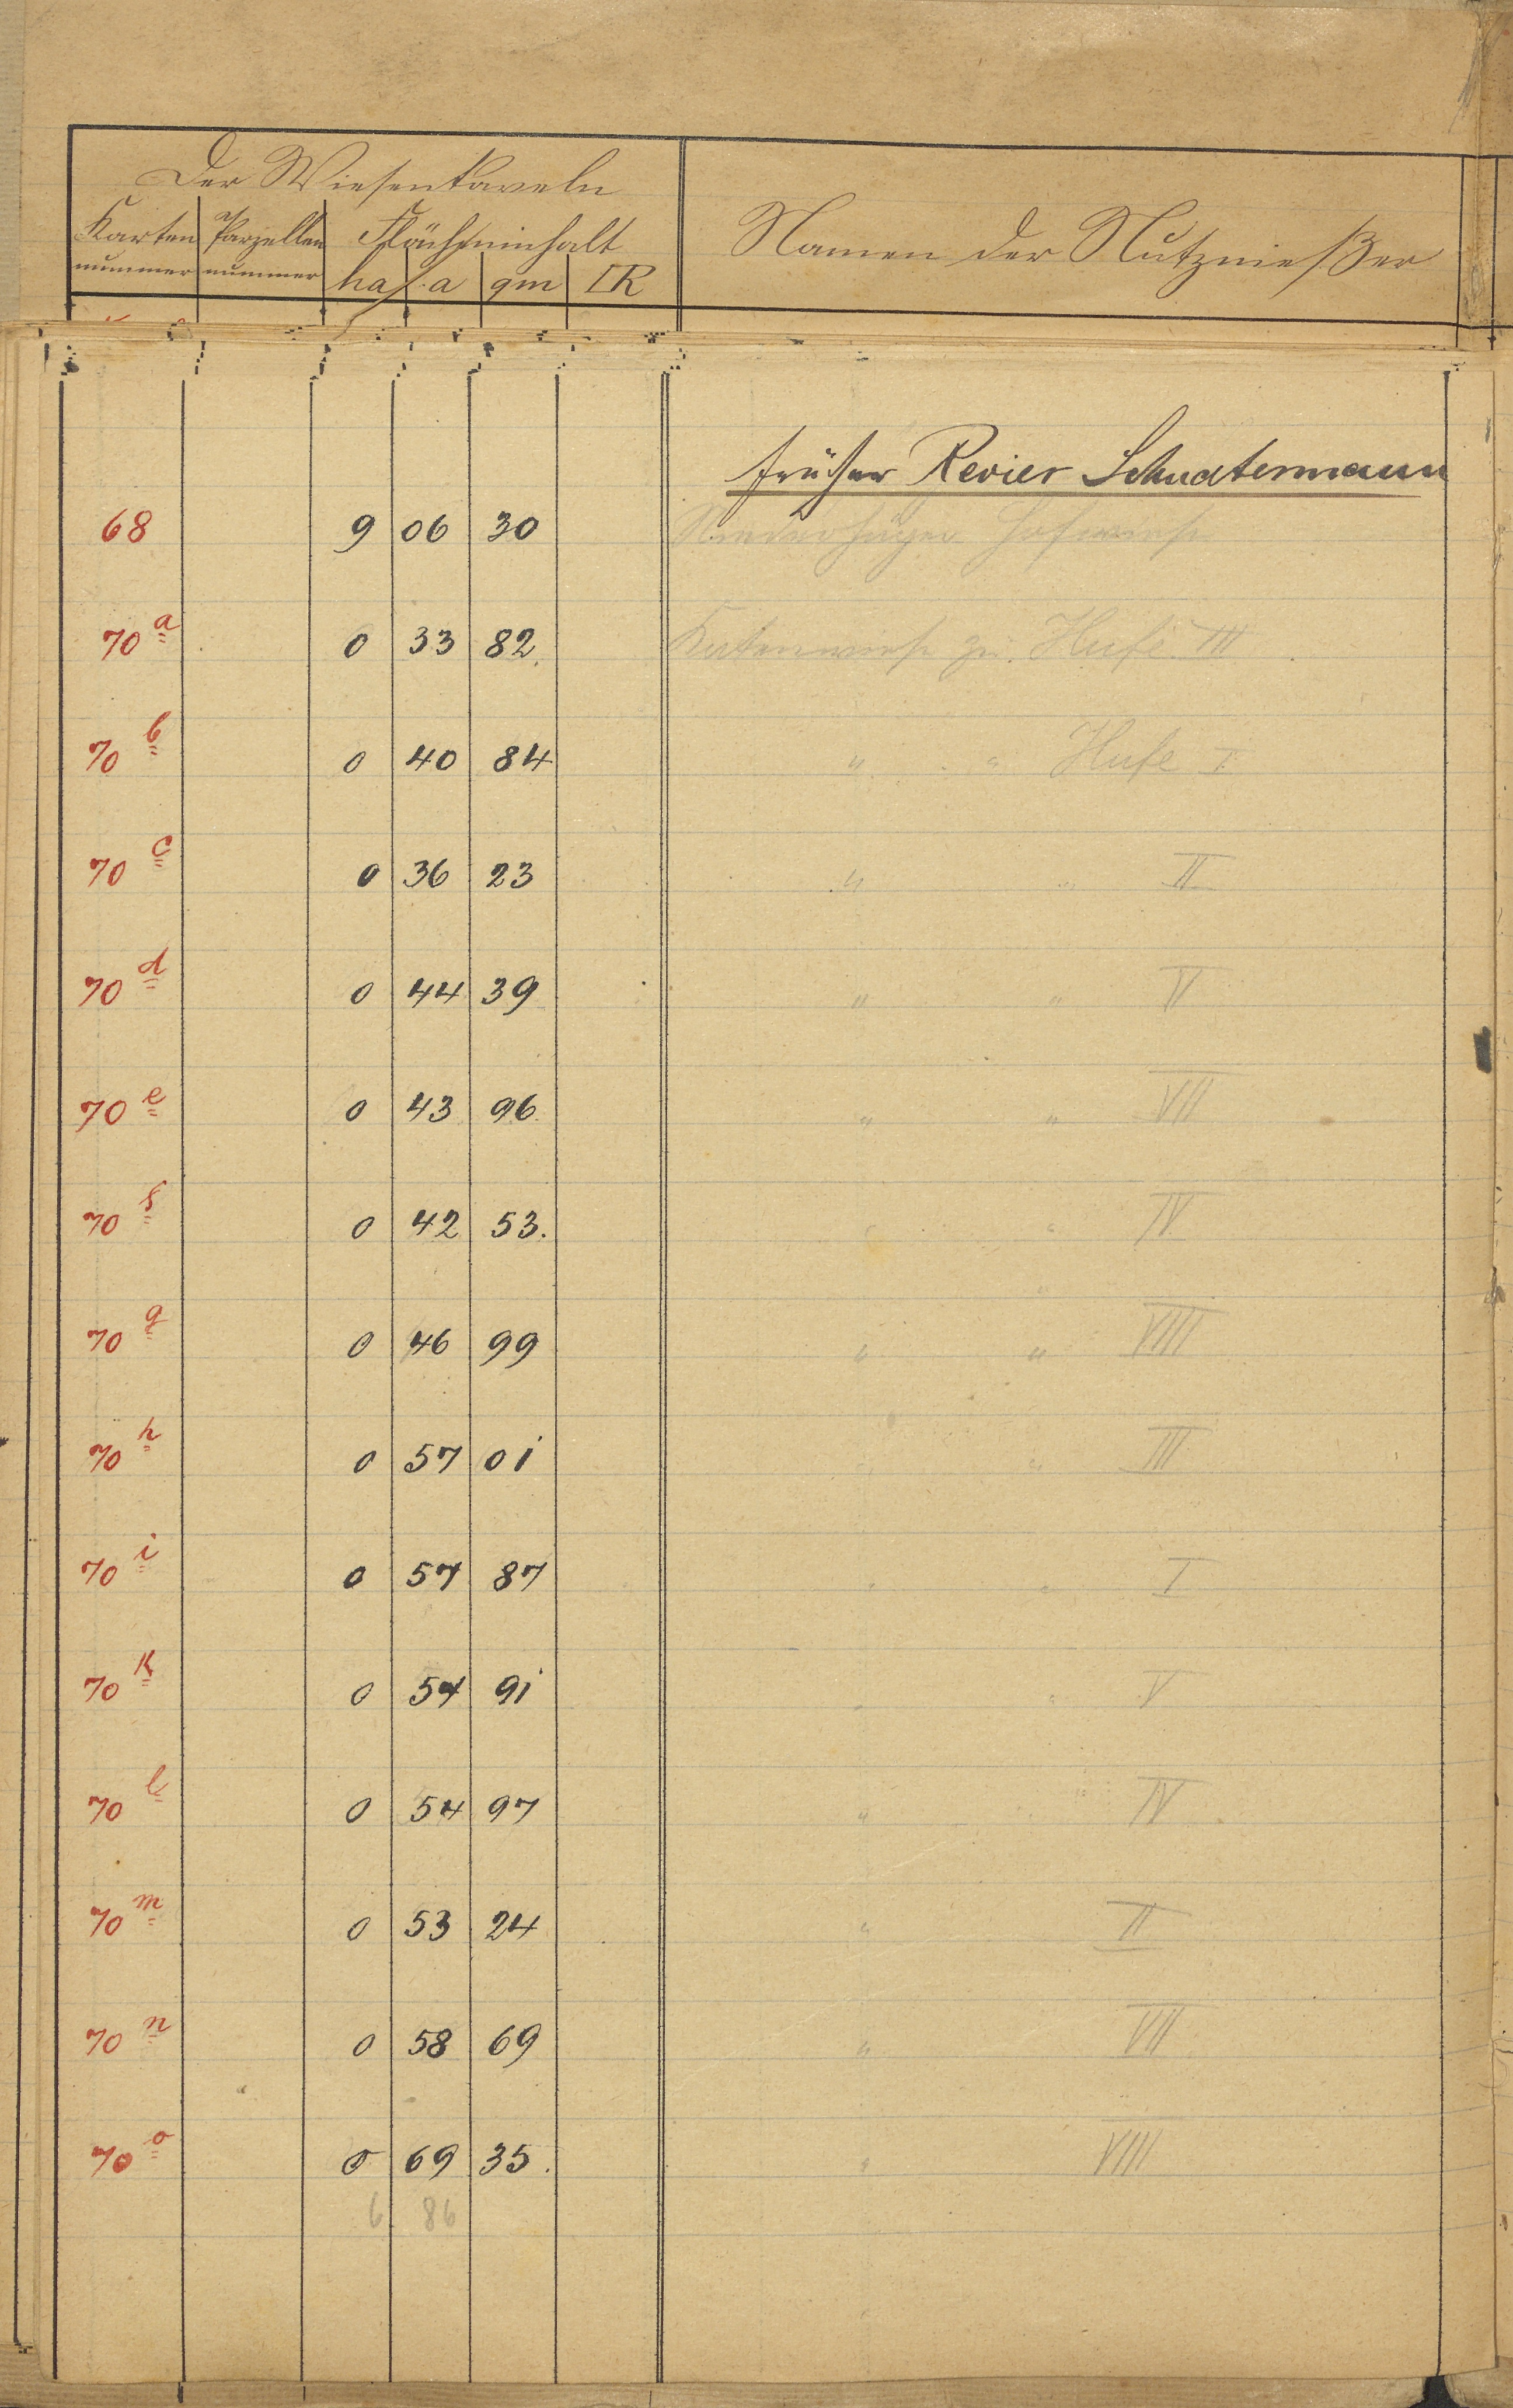 Der Wiesenkaveln
Karten Parzellen Flächeninhalt Namen der Nutznießer
nummer nummer ha a qm □R
früher Revier Schnatermann
68 9 06 30 Niederhäger Hofwiese
70 a 0 33 82. Katenwiese zu Hufe III
70 b 0 40 84 " " Hufe I
70 c 0 36 23 " " II
70 d 0 44 39 " " V
70 e 0 43 96 " " VII
70 f 0 42 53. " " IV
70 g 0 46 99 " " VIII
70 h 0 57 01 " " III
70 i 0 57 87 " " I
70 k 0 54 91 " " V
70 l 0 54 97 " " IV
70 m 0 53 24 " II
70 n 0 58 69 " VII
70 o 0 69 35. " VIII
6 86